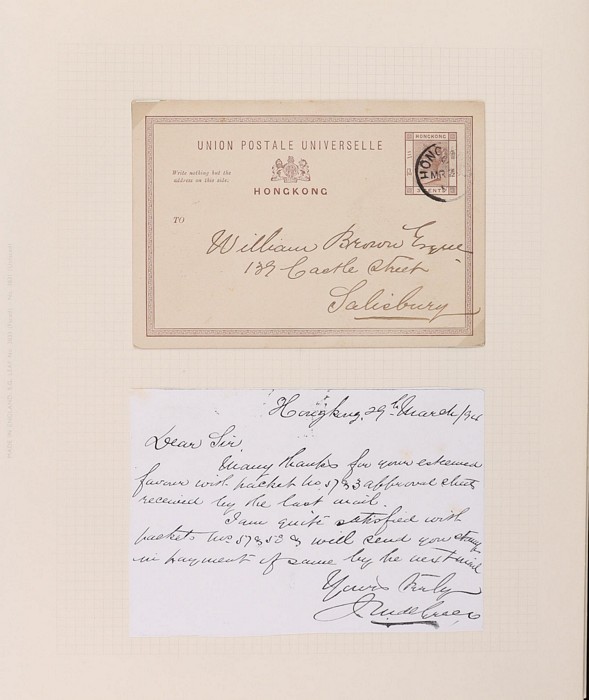 UNION POSTALE UNIVERSELLE
HONGKONG
Write nothing but the
address on this side.
HONGKONG
TO
William Brown Esqre
139 Castle Street
Salisbury
Hongkong, 29th March/94
Dear Sir,
Many thanks for your esteemed
favour with packet No 5733 approval sheets
received by the last mail.
I am quite satisfied with
packets Nos & will send you stamps
in payment of same by the next mail
Yours truly